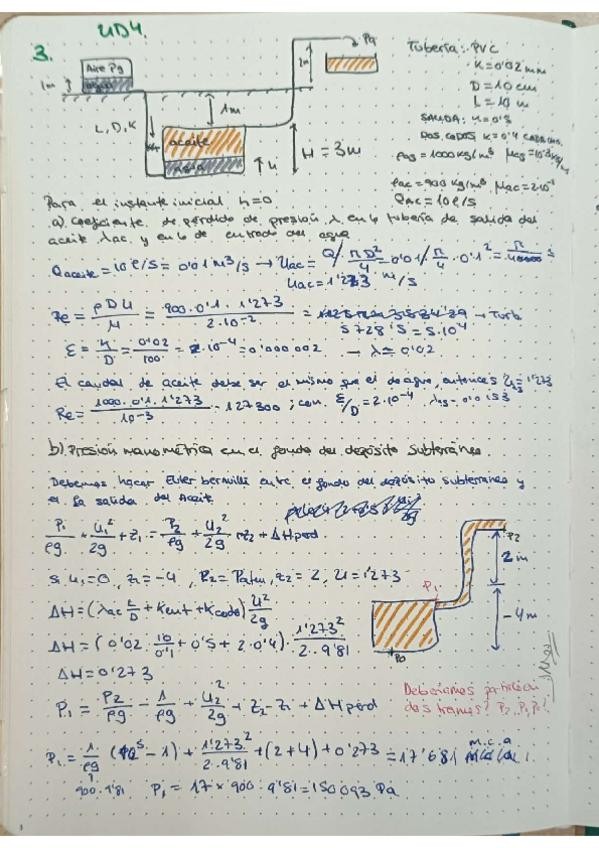 UD4.
3.
Aire Pg
agua
1m
L, D, K
1m
aceite
agua
H = 3m
h
2m
Pa
Tubería: PVC
K=0'02 mm
D=10 cm
L=10 m
SALIDA: K=0'5
DOS CODOS K=0'4 CADA UNO.
ρag=1000kg/m³ μag=10⁻³kg/m
ρac=900 kg/m³ μac=2·10⁻²
Qac=10 l/s
Para el instante inicial h=0
a) coeficiente de pérdida de presión λ en la tubería de salida del
aceite λac y en la de entrada del agua
Qaceite=10 l/s = 0'01 m³/s → Uac = Q/ πD²/4 = 0'01/ π/4 · 0'1² =
Uac=1'273 m/s
Re = ρDU/μ = 900·0'1·1'273/2·10⁻² = → Turb
5728'5=5·10⁴
ε = K/D = 0'02/100 = 2·10⁻⁴=0'000002 → λ≈0'02
El caudal de aceite debe ser el mismo que el de agua, entonces U=1'273
Re= 1000·0'1·1'273/10⁻³ = 127300; con ε/D=2·10⁻⁴
b) Presión manométrica en el fondo del depósito subterráneo.
Debemos hacer Euler bernilli entre el fondo del depósito subterraneo y
la salida del Aceite
P₁/ρg + U₁²/2g + z₁ = P₂/ρg + U₂²/2g + z₂ + ΔHperd
si U₁=0, z₁=-4, P₂=Patm, z₂=2, U=1'273
ΔH=(λac L/D + Kent + Kcodo) U²/2g
ΔH=(0'02·10/0'1+0'5+2·0'4)·1'273²/2·9'81
ΔH=0'273
P₁ = P₂/ρg - 1/ρg + U₂²/2g + z₂-z₁ + ΔHperd
P₁ = 1/ρg (10⁵-1) + 1'273²/2·9'81 + (2+4)+0'273 = 17'681 m.c.a
900·9'81 P₁=17×900·9'81=150093 Pa
P₂
2m
P₁
-4m
P₀
Deberíamos
dos tramos?